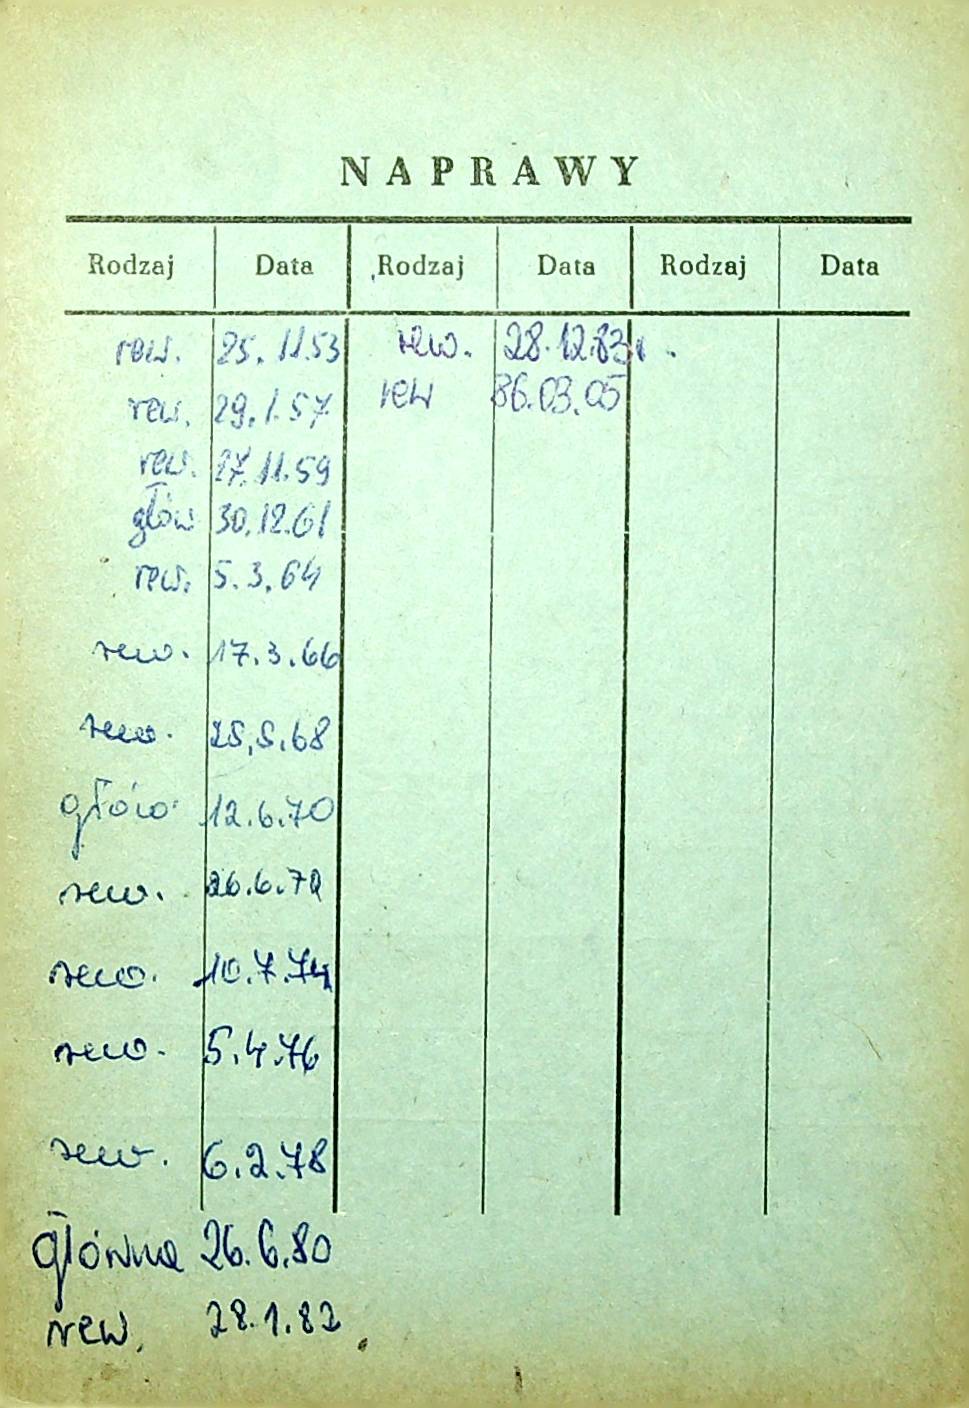 NAPRAWY
Rodzaj Data Rodzaj Data Rodzaj Data
rew. 25.11.53 rew. 28.12.83r.
rew. 29.1.57 rew 86.03.05
rew. 17.11.59
głów 30.12.61
rew. 5.3.64
rew. 17.3.66
rew. 25.5.68
głów 12.6.70
rew. 26.6.72
rew. 10.7.74
rew. 5.4.76
rew. 6.2.78
główna 26.6.80
rew. 28.1.82